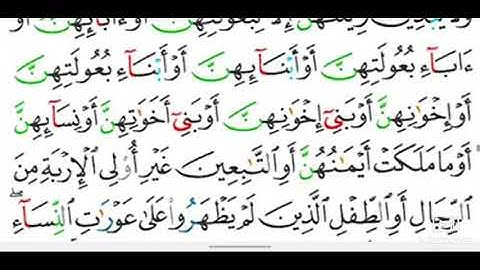 ءَابَآءِ بُعُولَتِهِنَّ أَوْ أَبْنَآئِهِنَّ أَوْ أَبْنَآءِ بُعُولَتِهِنَّ
أَوْ إِخْوَٰنِهِنَّ أَوْ بَنِىٓ إِخْوَٰنِهِنَّ أَوْ بَنِىٓ أَخَوَٰتِهِنَّ أَوْ نِسَآئِهِنَّ
أَوْ مَا مَلَكَتْ أَيْمَٰنُهُنَّ أَوِ ٱلتَّٰبِعِينَ غَيْرِ أُو۟لِى ٱلْإِرْبَةِ مِنَ
ٱلرِّجَالِ أَوِ ٱلطِّفْلِ ٱلَّذِينَ لَمْ يَظْهَرُوا۟ عَلَىٰ عَوْرَٰتِ ٱلنِّسَآءِ ۖ